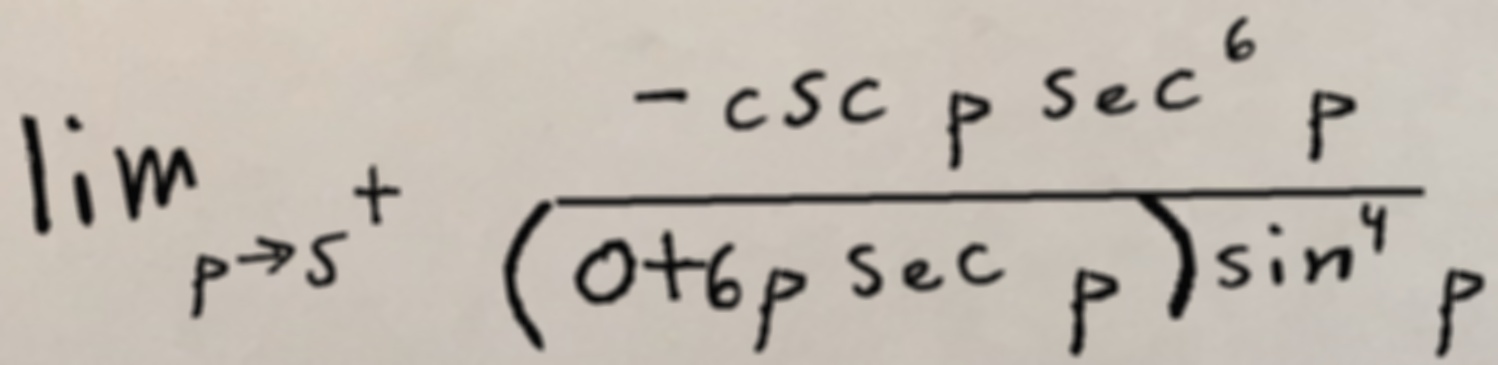 \lim_{p \to 5^+} \frac{-\csc p \sec^6 p}{(0 + 6p \sec p) \sin^4 p}